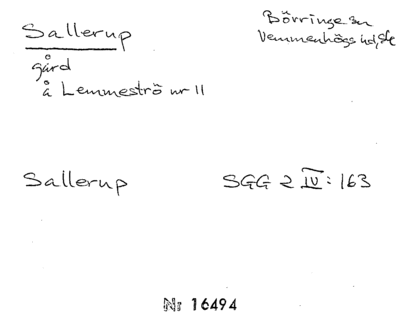 Sallerup
Börringe sn
Vemmenhögs hd, Sk
gård
å Lemmeströ nr 11
Sallerup SGG 2 IV: 163
Nr 16494